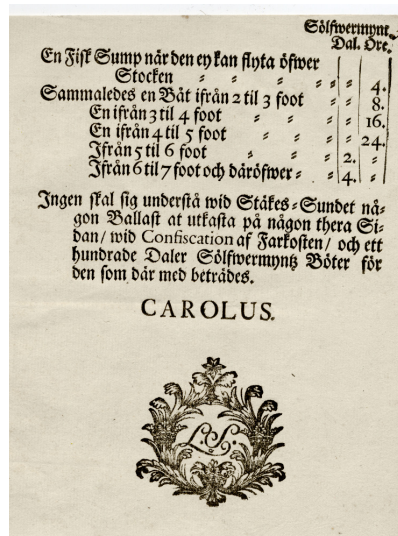 Sölfwermynt.
Dal. Öre.
En Fisk Sump när den ey kan flyta öfwer
Stocken " " " " " 4.
Sammaledes en Båt ifrån 2 til 3 foot " 8.
En ifrån 3 til 4 foot " " " 16.
En ifrån 4 til 5 foot " " " 24.
Ifrån 5 til 6 foot " " 2. "
Ifrån 6 til 7 foot och däröfwer " 4. "
Ingen skal sig understå wid Stäkes-Sundet nå-
gon Ballast at utkasta på någon thera Si-
dan/ wid Confiscation af Farkosten/ och ett
hundrade Daler Sölfwermyntz Böter för
den som där med beträdes.
CAROLUS.
L.S.